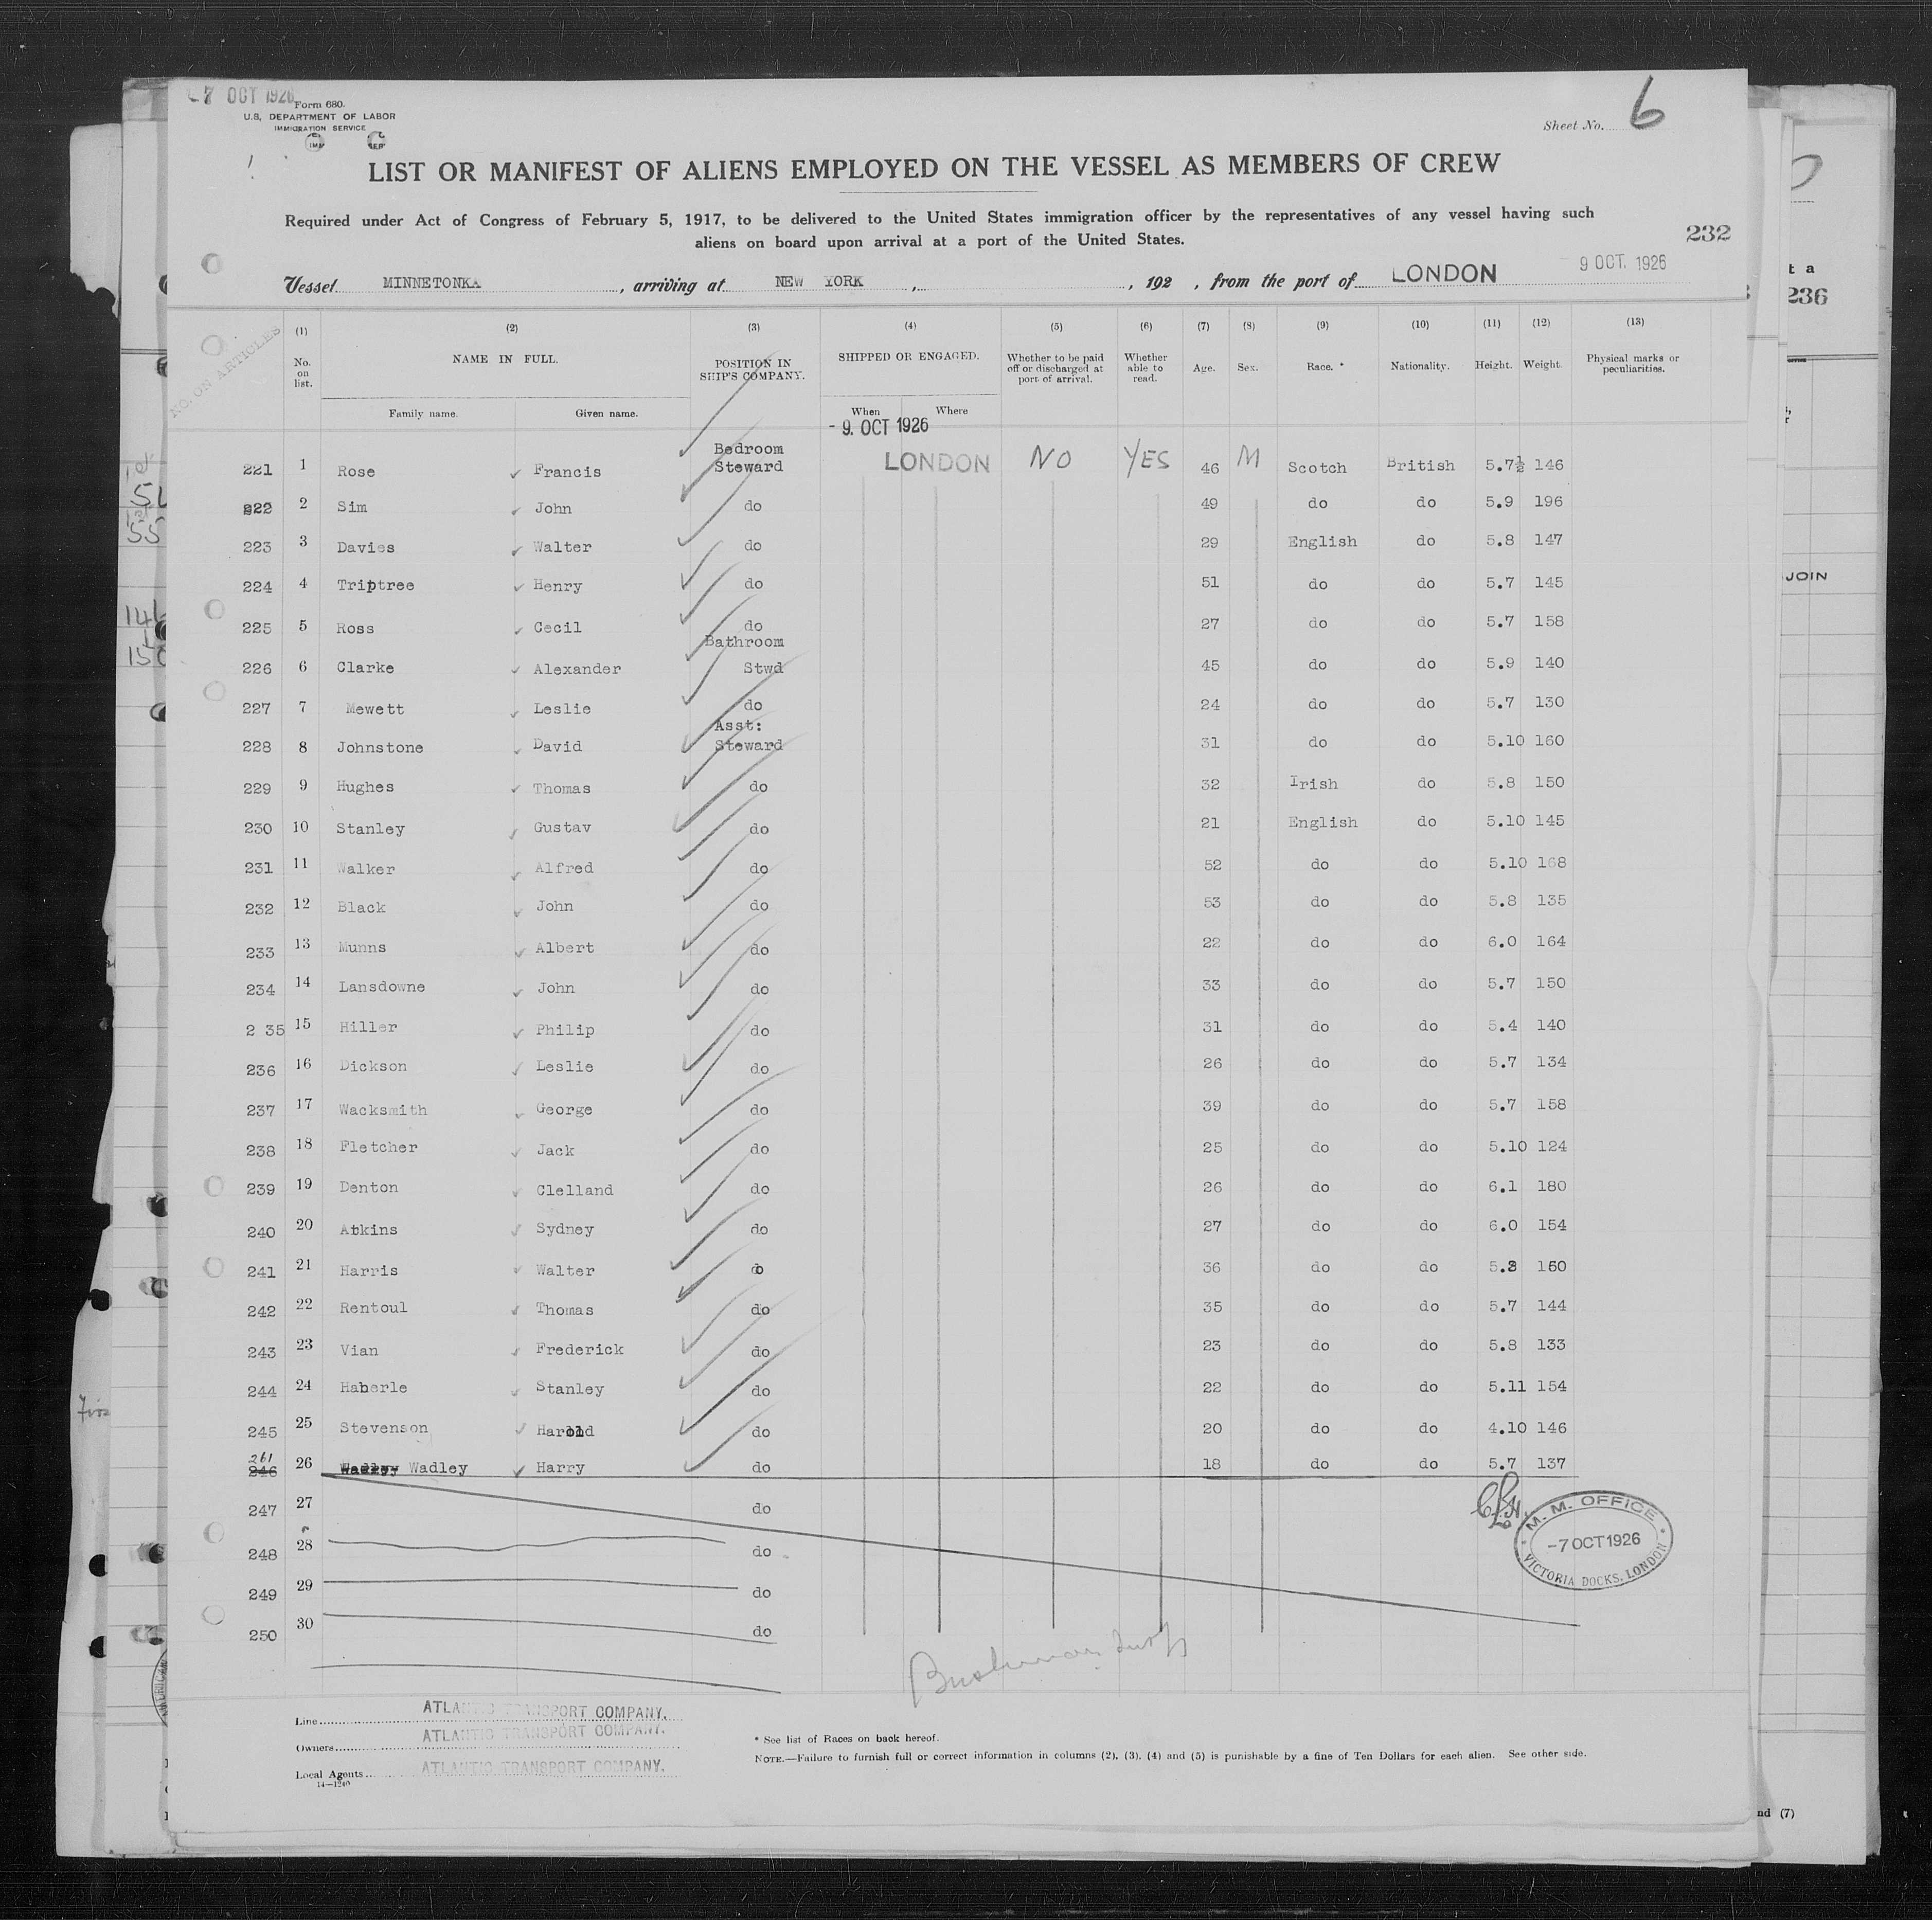 - 7 OCT 1926
Form 680.
U.S. DEPARTMENT OF LABOR
IMMIGRATION SERVICE
Sheet No. 6
LIST OR MANIFEST OF ALIENS EMPLOYED ON THE VESSEL AS MEMBERS OF CREW
Required under Act of Congress of February 5, 1917, to be delivered to the United States immigration officer by the representatives of any vessel having such
aliens on board upon arrival at a port of the United States.
232
236
9 OCT. 1926
Vessel MINNETONKA, arriving at NEW YORK, , 192 , from the port of LONDON
NO. ON ARTICLES
(1) (2) (3) (4) (5) (6) (7) (8) (9) (10) (11) (12) (13)
No. on list. NAME IN FULL. POSITION IN SHIP'S COMPANY. SHIPPED OR ENGAGED. Whether to be paid off or discharged at port of arrival. Whether able to read. Age. Sex. Race. * Nationality. Height. Weight. Physical marks or peculiarities.
Family name. Given name. When Where
- 9. OCT 1926
221 1 Rose Francis Bedroom Steward LONDON NO YES 46 M Scotch British 5.7½ 146
222 2 Sim John do 49 do do 5.9 196
223 3 Davies Walter do 29 English do 5.8 147
224 4 Triptree Henry do 51 do do 5.7 145
225 5 Ross Cecil do 27 do do 5.7 158
226 6 Clarke Alexander Bathroom Stwd 45 do do 5.9 140
227 7 Mewett Leslie do 24 do do 5.7 130
228 8 Johnstone David Asst: Steward 31 do do 5.10 160
229 9 Hughes Thomas do 32 Irish do 5.8 150
230 10 Stanley Gustav do 21 English do 5.10 145
231 11 Walker Alfred do 52 do do 5.10 168
232 12 Black John do 53 do do 5.8 135
233 13 Munns Albert do 22 do do 6.0 164
234 14 Lansdowne John do 33 do do 5.7 150
2 35 15 Hiller Philip do 31 do do 5.4 140
236 16 Dickson Leslie do 26 do do 5.7 134
237 17 Wacksmith George do 39 do do 5.7 158
238 18 Fletcher Jack do 25 do do 5.10 124
239 19 Denton Clelland do 26 do do 6.1 180
240 20 Atkins Sydney do 27 do do 6.0 154
241 21 Harris Walter do 36 do do 160
242 22 Rentoul Thomas do 35 do do 5.7 144
243 23 Vian Frederick do 23 do do 5.8 133
244 24 Haberle Stanley do 22 do do 5.11 154
245 25 Stevenson Harold do 20 do do 4.10 146
261
246 26 Wadley Wadley Harry do 18 do do 5.7 137
247 27 do
248 28 do
249 29 do
250 30 do
M. M. OFFICE
-7 OCT 1926
VICTORIA DOCKS, LONDON
Line ATLANTIC TRANSPORT COMPANY.
Owners ATLANTIC TRANSPORT COMPANY.
Local Agents ATLANTIC TRANSPORT COMPANY.
14—1240
* See list of Races on back hereof.
NOTE.—Failure to furnish full or correct information in columns (2), (3), (4) and (5) is punishable by a fine of Ten Dollars for each alien. See other side.
JOIN
nd (7)